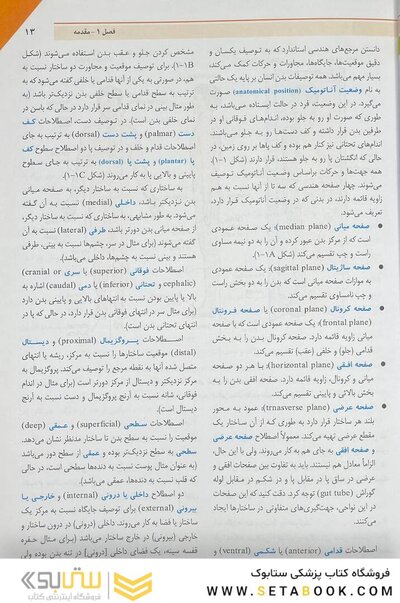 فصل ۱ – مقدمه
۱۳
دانستن مرجع‌های هندسی استاندارد که به توصیف یکسان و
دقیق موقعیت‌ها، جایگاه‌ها، مجاورات و حرکات کمک می‌کند،
بسیار مهم می‌باشد. همه توصیفات بدن انسان بر پایه یک حالتی
به نام وضعیت آناتومیک (anatomical position) صورت
می‌گیرد. در این وضعیت، فرد در حالت ایستاده می‌باشد، به
طوری که صورت او رو به جلو بوده، اندام‌های فوقانی او در
طرفین بدن قرار داشته و کف دست‌ها رو به جلو می‌باشند.
اندام‌های تحتانی نیز کنار هم بوده و کف پاها بر روی زمین، در
حالی که انگشتان پا رو به جلو هستند، قرار دارند (شکل ۱–۱).
همه جهت‌ها و حرکات براساس وضعیت آناتومیک توصیف
می‌شوند. چهار صفحه هندسی که سه تا از آنها نسبت به هم
زاویه قائمه دارند، در بدنی که در وضعیت آناتومیک قرار دارد،
تعریف می‌شود.
• صفحه میانی (median plane): یک صفحه عمودی
است که از مرکز بدن عبور کرده و آن را به دو نیمه مساوی
راست و چپ تقسیم می‌کند (شکل ۱A–۱).
• صفحه ساژیتال (sagittal plane): یک صفحه عمودی
به موازات صفحه میانی است که بدن را به دو بخش راست
و چپ نامساوی تقسیم می‌کند.
• صفحه کرونال (coronal plane) یا صفحه فرونتال
(frontal plane): یک صفحه عمودی است که با صفحه
میانی زاویه قائمه دارد. صفحه کرونال بدن را به بخش
قدامی (جلو) و خلفی (عقب) تقسیم می‌کند.
• صفحه افقی (horizontal plane): با هر دو صفحه
میانی و کرونال، زاویه قائمه دارد. صفحه افقی بدن را به
بخش بالائی و پایینی تقسیم می‌کند.
• صفحه عرضی (trnasverse plane): عمود به محور
بلند هر ساختار قرار دارد به طوری که از آن ساختار یک
مقطع عرضی تهیه می‌کند. معمولاً اصطلاح صفحه عرضی
و صفحه افقی به جای هم به کار می‌روند. ولی با این حال،
الزاماً معادل هم نیستند. باید به تفاوت بین صفحات افقی و
عرضی در ساق پا در مقابل پا و در شکم در مقابل لوله
گوراش (gut tube) توجه کرد. دقت کنید که این صفحات
در این نواحی، جهت‌گیری‌های متفاوتی در ساختارها ایجاد
می‌کنند.
اصطلاحات قدامی (anterior) یا شکمی (ventral) و
مشخص کردن جلو و عقب بدن استفاده می‌شوند (شکل
۱B–۱). برای توصیف موقعیت و مجاورت دو ساختار نسبت به
هم، در صورتی به یکی از آنها قدامی یا خلفی گفته می‌شود که به
ترتیب به سطح قدامی یا سطح خلفی بدن نزدیک‌تر باشد (به
طور مثال بینی در نمای قدامی سر قرار دارد در حالی که باسن در
نمای خلفی بدن است). در توصیف دست، اصطلاحات کف
دست (palmar) و پشت دست (dorsal) به ترتیب به جای
اصطلاحات قدام و خلف و در توصیف پا دو اصطلاح سطوح کف
پا (plantar) و پشت پا (dorsal) به ترتیب به جای سطوح
پایینی و بالایی پا به کار می‌روند (شکل ۱C–۱).
به ساختاری که نسبت به ساختار دیگر، به صفحه میانی
بدن نزدیکتر باشد، داخلی (medial) نسبت به آن گفته
می‌شود. به طور مشابهی، به ساختاری که نسبت به ساختار دیگر،
از صفحه میانی بدن دورتر باشد، طرفی (lateral) نسبت به آن
گفته می‌شوند (برای مثال در سر، چشم‌ها نسبت به بینی، طرفی
هستند و بینی نسبت به چشم‌ها، داخلی می‌باشد).
اصطلاحات فوقانی (superior) یا سری (cranial or
cephalic) و تحتانی (inferior) یا دمی (caudal) اشاره به
بالا یا پایین بودن نسبت به انتهاهای بالایی و پایینی بدن دارد
(برای مثال سر در انتهای فوقانی بدن قرار دارد، در حالی که پا در
انتهای تحتانی بدن است).
اصطلاحات پروگزیمال (proximal) و دیستال
(distal) موقعیت ساختارها را نسبت به مرکز، ریشه یا انتهای
متصل شده آنها به نقطه مرجع را توصیف می‌کند. پروگزیمال به
مرکز نزدیکتر و دیستال از مرکز دورتر است (برای مثال در اندام
فوقانی، شانه نسبت به آرنج پروگزیمال و دست نسبت به آرنج
دیستال است).
اصطلاحات سطحی (superficial) و عمقی (deep)
موقعیت را نسبت به سطح بدن تا ساختار مدنظر نشان می‌دهد.
سطحی به سطح نزدیک‌تر بوده و عمقی از سطح دور می‌باشد
(به عنوان مثال پوست نسبت به دنده‌ها سطحی است، در حالی
که قلب نسبت به دنده‌ها، عمقی می‌باشد).
دو اصطلاح داخلی یا درونی (internal) و خارجی یا
بیرونی (external) برای توصیف جایگاه نسبت به یک مرکز
ساختار یا فضا به کار می‌روند. داخلی (درونی) در درون ساختار و
خارجی (بیرونی) در خارج ساختار می‌باشد (برای مثال حفره
قفسه سینه، یک فضای داخلی [درونی] در تنه بدن بوده ولی
ستابوک
فروشگاه اینترنتی کتاب
فروشگاه کتاب پزشکی ستابوک
WWW.SETABOOK.COM